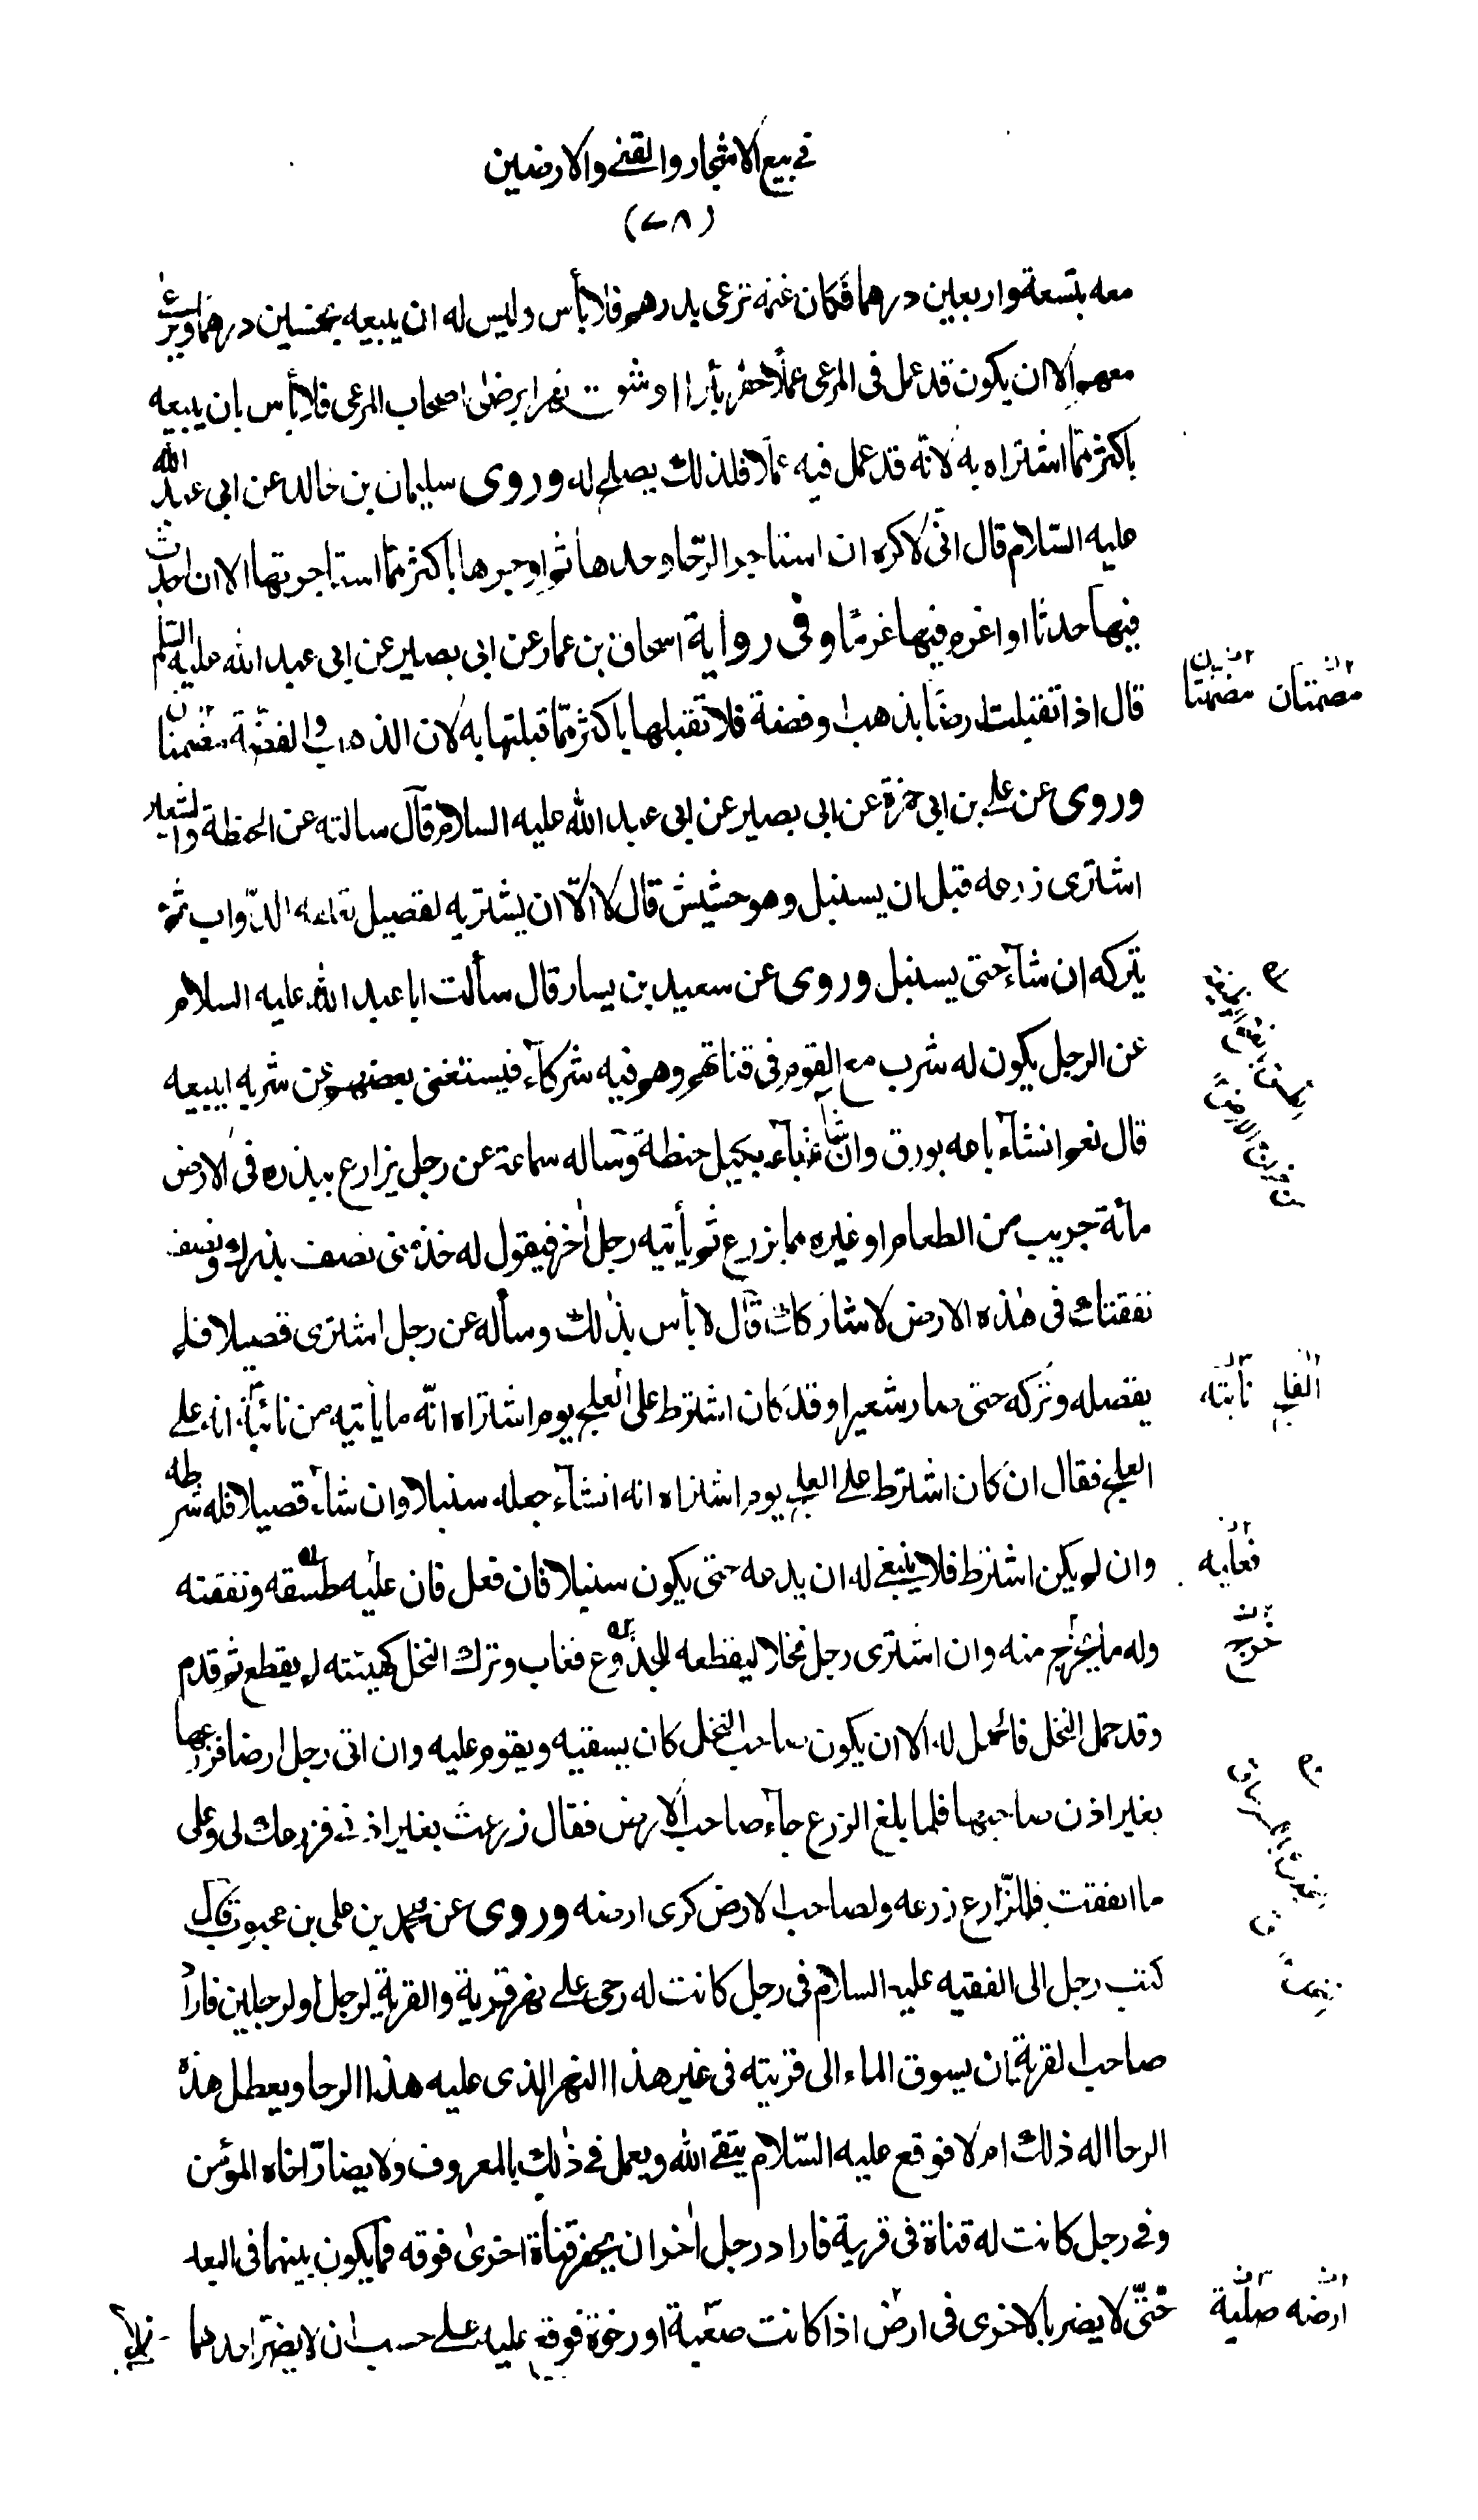 في بيع الاشجار والقني والارضين
(٧٨)
معه بتسعة واربعين درهما فكان غنمه ترعى بدرهم فلا بأس وليس له ان يبيعه بخمسين درهما ويرعى
معهم الا ان يكون قد عمل فى المرعى عملا حفر بأرا او شق نهرا برضى اصحاب المرعى فلا بأس بان يبيعه
باكثر مما اشتراه به لانه قد عمل فيه عملا فلذلك يصلح له وروى سليمان بن خالد عن ابى عبد الله
عليه السّلام قال انّى لاكره ان استاجر الرّحا وحدها ثم اوجرها باكثر ممّا استاجرتها الا ان احدث
فيها حدثا او اغرم فيها غرمًا وفى رواية اسحاق بن عمار عن ابى بصير عن ابى عبد الله عليه السّلم
مصمتتان
قال اذا تقبلت ارضًا بذهب او فضة فلا تقبلها باكثر ممّا قبلتها به لان الذهب والفضّة
وروى عن على بن ابى حمزة عن ابى بصير عن ابى عبد الله عليه السلام قال سالته عن الحنطة والشعير
اشترى زرعه قبل ان يسنبل وهو حشيش قال لا الّا ان يشتريه لقصيل تعلفه الدّواب ثم
يتركه ان شآء حتى يسنبل وروى عن سعيد بن يسار قال سألت ابا عبد الله عليه السلام
عن الرجل يكون له شرب مع القوم فى قناتهم وهو فيه شركآء فيستغنى بعضهم عن شربه ايبيعه
قال نعم انشآء باعه بورق وان شآء باعه بكيل حنطة وسأله سماعة عن رجل يزارع ببذره فى الارض
مائة جريب من الطعام او غيره مما يزرع ثم يأتيه رجل اخر فيقول له خذ منى نصف بذرك ونصف
نفقتك فى هذه الارض لاشاركك قال لا بأس بذلك وسأله عن رجل اشترى قصيلا فلم
نائبة
يقصله وتركه حتى صار شعيرا وقد كان اشترط على العلج يوم اشتراه انّه ما يأتيه من نائبة انه على
العلج فقال ان كان اشترط على العلج يوم اشتراه انه انشآء جعله سنبلا وان شاء قصيلا فله شرطه
فعليه
وان لم يكن اشترط فلا ينبغى له ان يدعه حتى يكون سنبلا فان فعل فان عليه طسقه ونفقته
خرج
وله ما يخرج منه وان اشترى رجل نخلا ليقطعه للجذوع فغاب وترك النخل كهيئته لم يقطع ثم قدم
وقد حمل النخل فالحمل له الا ان يكون صاحب النخل كان يسقيه ويقوم عليه وان اتى رجل ارضا فزرعها
بغير اذن صاحبها فلما بلغ الزرع جآء صاحب الارض فقال زرعت بغير اذنى فزرعك لى وعلى
ما انفقت فللزّارع زرعه ولصاحب الارض كرى ارضه وروى عن محمد بن على بن محبوب قال
كتب رجل الى الفقيه عليه السلام فى رجل كانت له رحى على نهر قرية والقرية لرجل او لرجلين فاراد
صاحب القرية ان يسوق الماء الى قريته فى غير هذا النهر الذى عليه هذا الرحا ويعطل هذه
الرحا اله ذلك ام لا فوقع عليه السّلام يتقى الله ويعمل فى ذلك بالمعروف ولا يضارّ اخاه المؤمن
وفى رجل كانت له قناة فى قرية فاراد رجل اخر ان يحفر قناة اخرى فوقه فما يكون بينهما فى البعد
ارضه صلبة
حتّى لا يضر بالاخرى فى ارض اذا كانت صعبة او رخوة فوقع عليه على حسب ان لا يضرّ احدهما